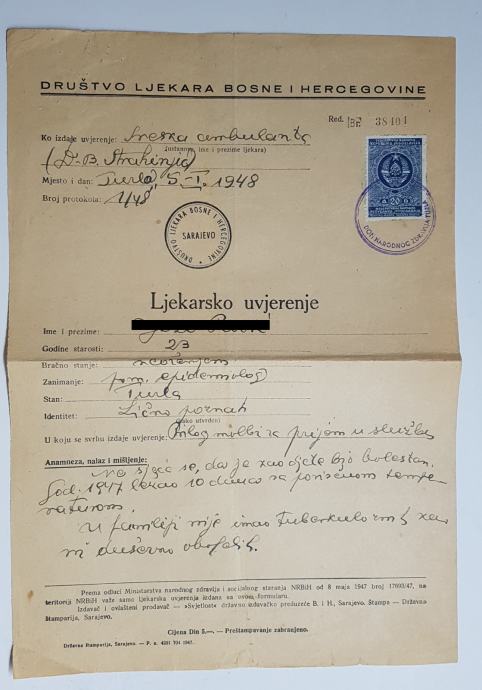 DRUŠTVO LJEKARA BOSNE I HERCEGOVINE
Red. Br. 38404
Ko izdaje uvjerenje: Sreska ambulanta
(ustanova, ime i prezime ljekara)
(Dr B. Strahinjić)
Mjesto i dan: Tuzla, 5. I. 1948
Broj protokola: 1/48
20
DRUŠTVO LJEKARA BOSNE I HERCEGOVINE
SARAJEVO
Ljekarsko uvjerenje
Ime i prezime:
Godine starosti: 23
Bračno stanje: neoženjen
Zanimanje: pom. epidemolog
Stan: Tuzla
Identitet: Lično poznat
(kako utvrđen)
U koju se svrhu izdaje uvjerenje: Prilog molbi za prijem u službu
Anamneza, nalaz i mišljenje:
Ne sjeća se, da je kao dijete bio bolestan.
God. 1947 ležao 10 dana sa povišenom tempe
raturom.
U familiji nije imao tuberkuloznih kao
ni duševno oboljelih.
Prema odluci Ministarstva narodnog zdravlja i socijalnog staranja NRBiH od 8 maja 1947 broj 17693/47, na
teritoriji NRBiH važe samo ljekarska uvjerenja izdana na ovom formularu.
Izdavač i ovlašteni prodavač — »Svjetlost« državno izdavačko preduzeće B. i H., Sarajevo. Štampa — Državna
štamparija, Sarajevo.
Cijena Din 5.—. — Preštampavanje zabranjeno.
Državna štamparija, Sarajevo. — P. n. 4251 704 1947.